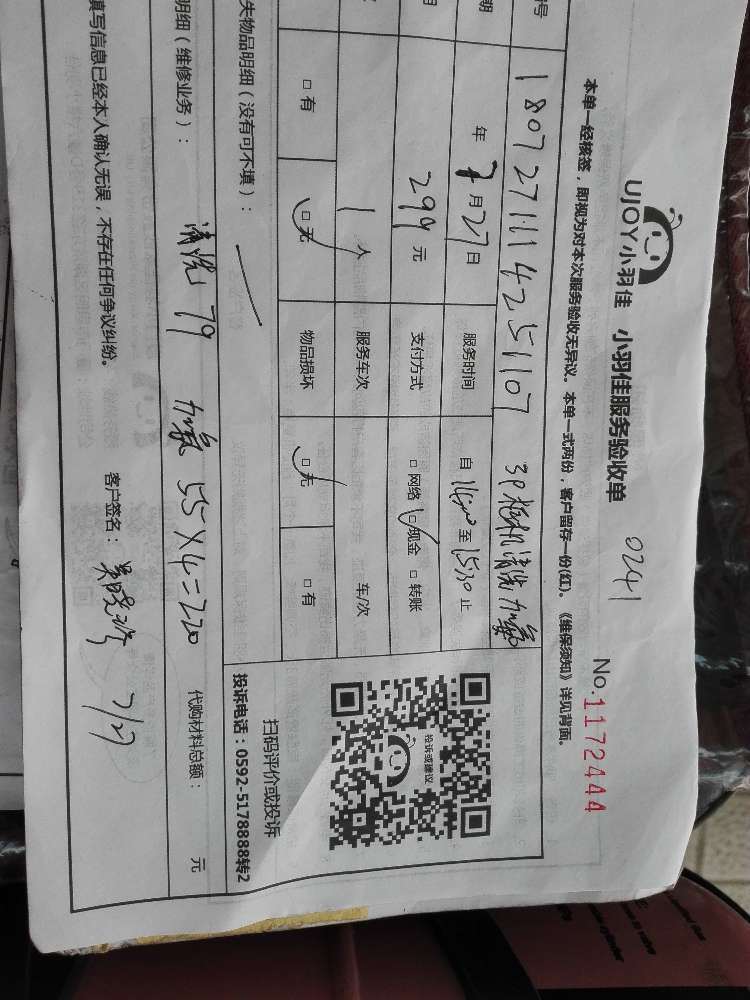 UJOY小羽佳 小羽佳服务验收单 0241 No.1172444
本单一经核签，即视为对本次服务验收无异议。本单一式两份，客户留存一份(红)。《维保须知》详见背面。
号 180727111425107 3P柜机清洗加氟
期 年 7月27日 服务时间 自 14:00 至 15:30 止
299元 支付方式 □ 网络 □ 现金 □ 转账
1人 服务车次 车/次
□ 有 □ 无 物品损坏 □ 无 □ 有
投诉或建议
扫码评价或投诉
投诉电话：0592-5178888转2
失物品明细（没有可不填）：
明细（维修业务）： 清洗 79 加氟 55×4=220 代购材料总额： 元
填写信息已经本人确认无误，不存在任何争议纠纷。 客户签名： 7/27